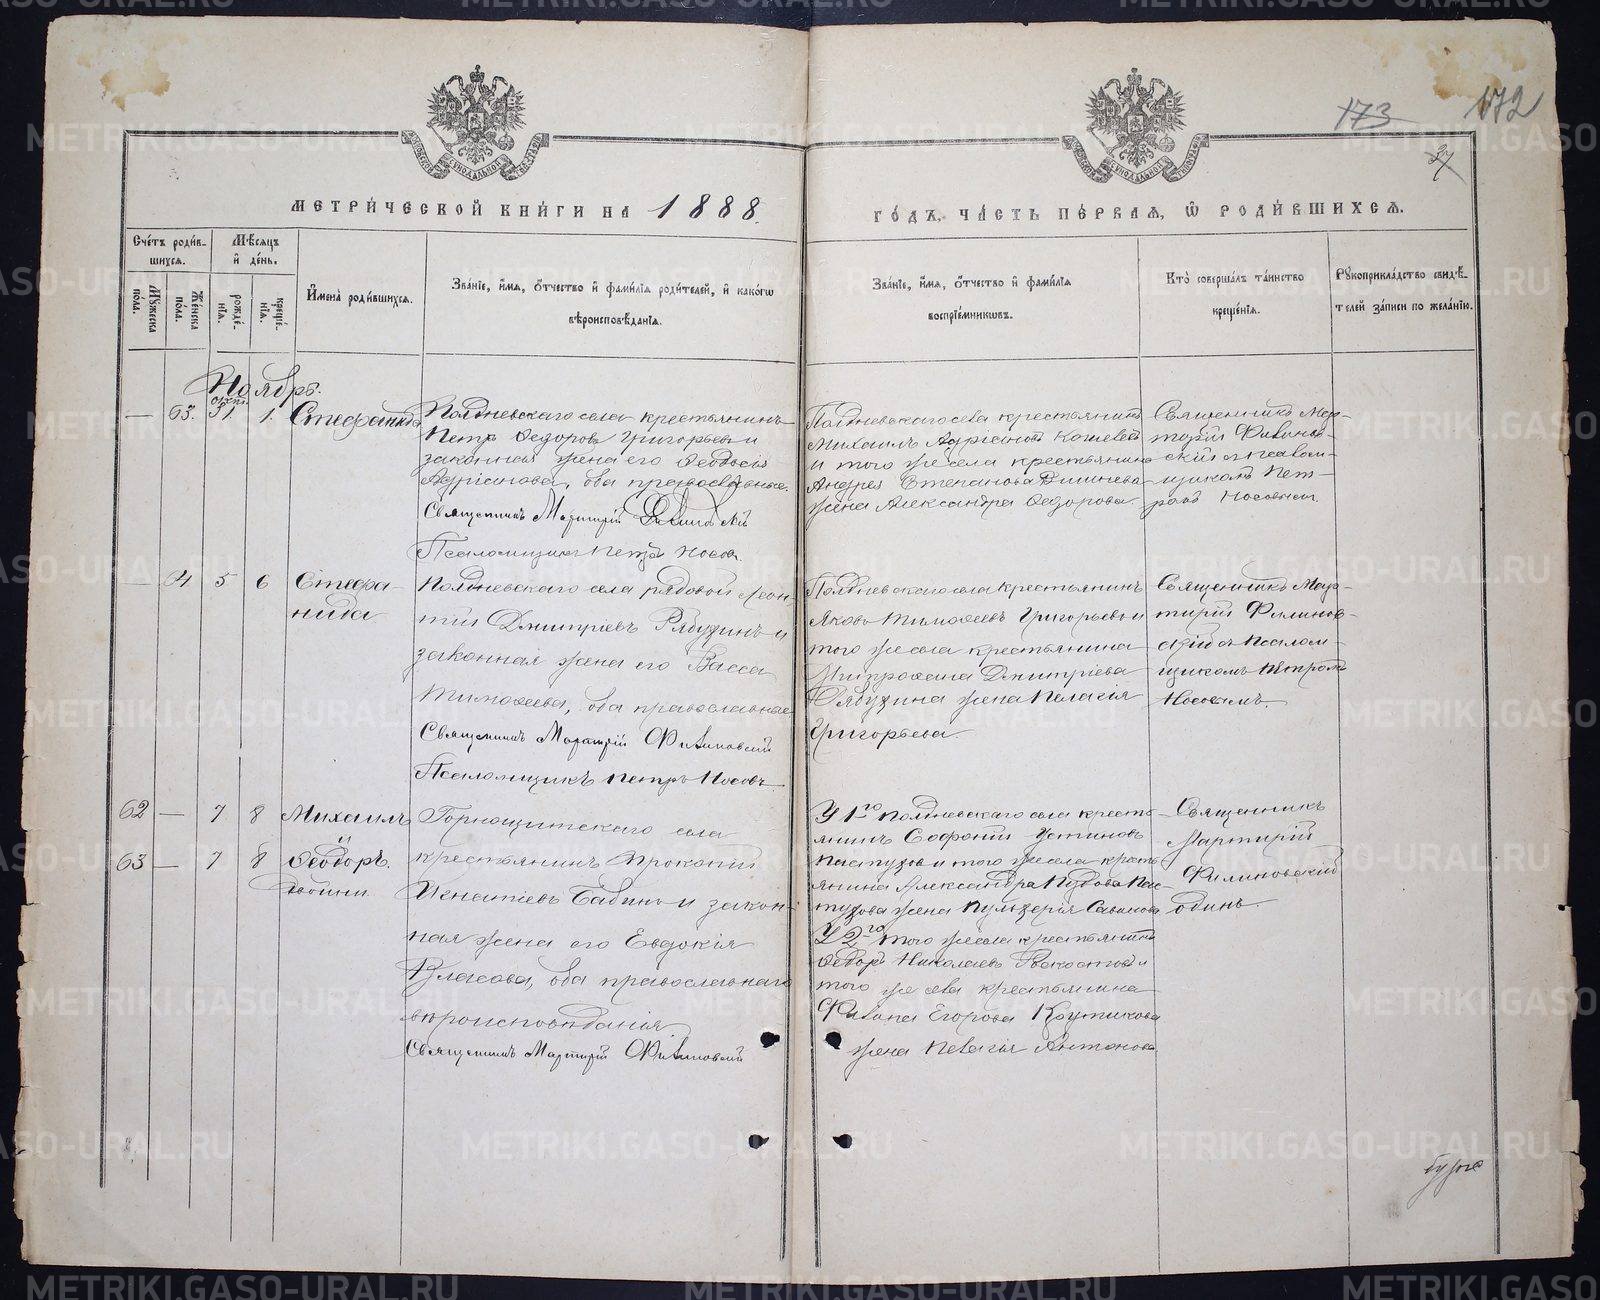 173 172
27
МЕТРИЧЕСКОЙ КНИГИ НА 1888
ГОДЪ, ЧАСТЬ ПЕРВАЯ, Ѿ РОДИВШИХСЯ.
Счетъ родив-
шихся.
Мужеска пола.
Женска пола.
Мѣсяцъ и день.
рожде-нія.
креще-нія.
Имена родившихся.
Званіе, имя, отчество и фамилія родителей, и какого
вѣроисповѣданія.
Званіе, имя, отчество и фамилія
воспріемниковъ.
Кто совершалъ таинство
крещенія.
Рукоприкладство свидѣ-
телей записи по желанію.
Ноябрь.
— 63. 31. 1.
Полдневскаго села крестьянинъ
Петръ Ѳедоровъ Григорьевъ и
законная жена его Ѳеодосія
Адріанова, оба православные.
Священникъ Мартирій Филиновскій
Псаломщикъ Петръ Носовъ.
Полдневскаго села крестьянинъ
Михаилъ Адріановъ
и того же села крестьянина
Андрея Степанова
жена Александра Ѳедорова.
Священникъ Мар-
тирій Филинов-
скій съ псалом-
щикомъ Пет-
ромъ Носовымъ.
— 64 5 6 Стефа-
нида
Полдневскаго села рядовой Леон-
тій Дмитріевъ Рябухинъ и
законная жена его Васса
Тимоѳеева, оба православные
Священникъ Мартирій Филиновскій
Псаломщикъ Петръ Носовъ
Полдневскаго села крестьянинъ
Яковъ Тимоѳеевъ Григорьевъ и
того же села крестьянина
Дмитріева
Рябухина жена Пелагія
Григорьева.
Священникъ Мар-
тирій Филинов-
скій съ Псалом-
щикомъ Петромъ
Носовымъ.
62 — 7 8 Михаилъ
и
63 — 7 8 Ѳеодоръ.
двойни.
Горнощитскаго села
крестьянинъ Прокопій
Игнатіевъ Бабинъ и закон-
ная жена его Евдокія
Власова, оба православнаго
вѣроисповѣданія
Священникъ Мартирій Филиновскій
У 1го Полдневскаго села кресть-
янинъ Софоній Устиновъ
Пастуховъ и того же села кресть-
янина Александра Пас-
тухова жена Пульхерія
У 2го того же села крестьянинъ
Ѳедоръ Николаевъ
того же села крестьянина
Егорова
жена Пелагія Антонова.
Священникъ
Мартирій
Филиновскій
одинъ.
METRIKI.GASO-URAL.RU